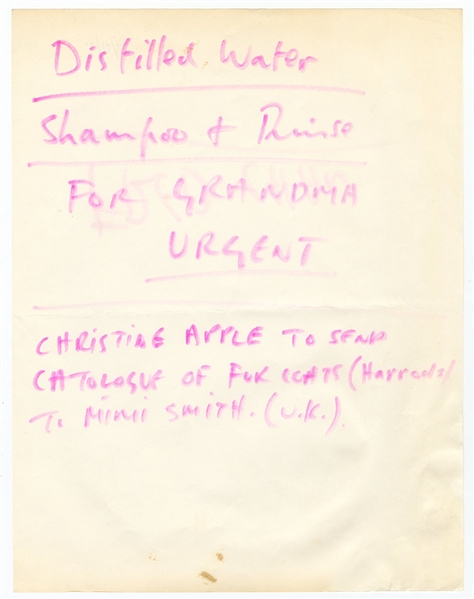 Distilled Water
Shampoo & Rinse
FOR GRANDMA
URGENT
CHRISTINE APPLE TO SEND
CATOLOGUE OF FUR COATS (Harrods)
To MIMI SMITH. (U.K.).